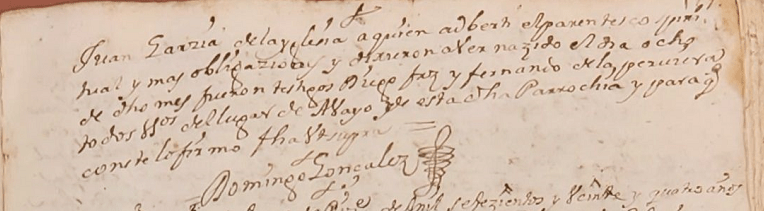 Juan Garzia de la yglesia a quien adberti el parentesco spiri-
tual y mas obligaziones y dixeron aver nazido el dia ocho
de dho mes fueron testigos Diego frz y fernando de la
todos vos del lugar de Mayo y de esta dha Parrochia y para q
conste lo firmo fha Ut supra
Domingo Gonçalez
de mil setezientos y Veinte y quatro años